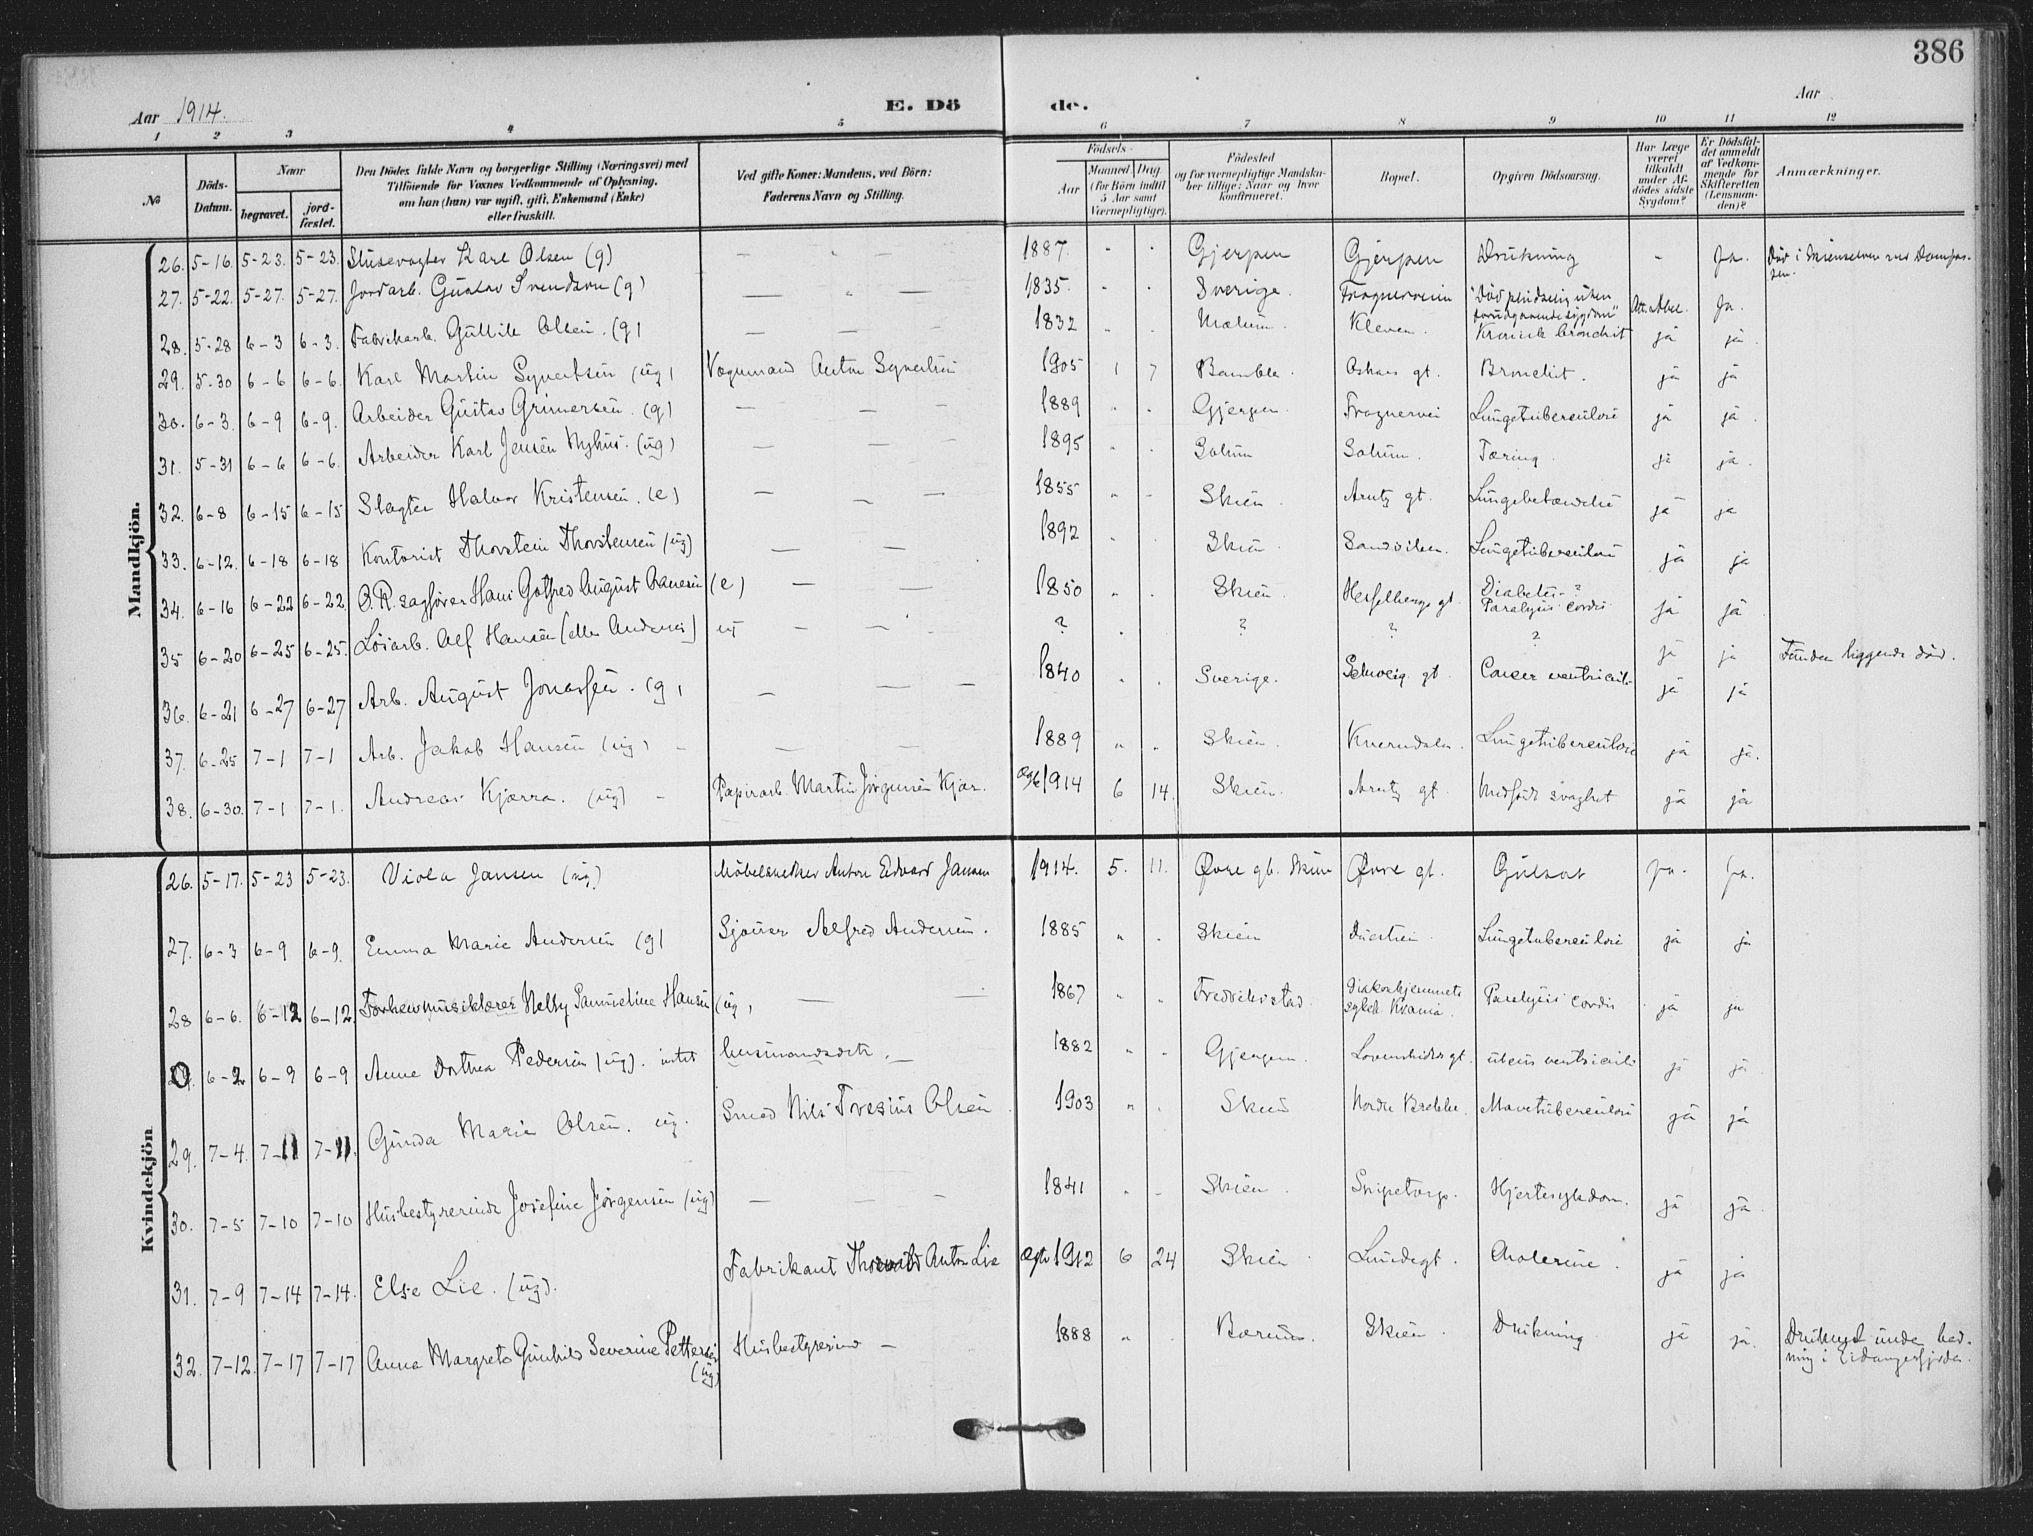 386
Aar 1914.
E. Dö de.
Aar
1 2 3 4 5 6 7 8 9 10 11 12
№
Döds-Datum.
Naar
begravet.
jord-fæstet.
Den Dödes fulde Navn og borgerlige Stilling (Næringsvei) med
Tilföiende for Voxnes Vedkommende af Oplysning,
om han (hun) var ugift, gift, Enkemand (Enke)
eller fraskilt.
Ved gifte Koner: Mandens, ved Börn:
Faderens Navn og Stilling.
Födsels-
Aar
Maaned Dag
(for Börn indtil
5 Aar samt
Værnepligtige).
Födested
og for værnepligtige Mandska-
ber tillige: Naar og hvor
konfirmeret.
Bopæl.
Opgiven Dödsaarsag.
Har Læge
været
tilkaldt
under Af-
dödes sidste
Sygdom?
Er Dödsfal-
det anmeldt
af Vedkom-
mende for
Skifteretten
(Lensman-
den)?
Anmærkninger.
Mandkjön.
26. 5-16. 5-23. 5-23. Slusevogter Karl Olsen (g) 1887. Gjerpen Gjerpen Drukning - ja. Død i Skienselven
27. 5-22. 5-27. 5-27. Jordarb. Gustav Svendsen (g) 1835. Sverige. Frognerveien "Død pludselig uten forudgaaende sygdom" Ja.
28. 5-28 6-3 6-3. Fabrikarb. Gullik Olsen. (g) 1832 Mælum. Kleven. Kronisk bronchit ja ja.
29. 5-30 6-6 6-6. Karl Martin Syvertsen (ug) Vognmand Anton Syvertsen 1905 1 7 Bamble. Oskars gt. Bronchit. ja ja
30. 6-3. 6-9 6-9. Arbeider Gustav Grimersen. (g) 1889 Gjerpen Frognervei Lungetuberculose ja ja.
31. 5-31 6-6 6-6. Arbeider Karl Jensen Nyhus. (ug) 1895 Solum Solum. Tæring. ja ja.
32. 6-8 6-15 6-15 Slagter Halvor Kristensen. (e) 1855 Skien. Arntz gt. Lungebetændelse ja ja
33. 6-12. 6-18 6-18 Kontorist Thorstein Thorstensen (ug) 1892 Skien Lungetuberculose ja ja
34. 6-16 6-22 6-22 O.R. sagfører Hans Gotfred August (e) 1850 Skien. Hesselbergs gt. Diabetes - ? Paralysis cordis ja ja.
35 6-20 6-25 6-25. Løsarb. Alf Hansen (eller Anderss) ug ? ? ? ? ja ja Funden liggende død.
36. 6-21 6-27 6-27 Arb. August Jonassen. (g) 1840 Sverige. Schweig. gt. Cancer ventriculi ja ja
37. 6-25 7-1 7-1 Arb. Jakob Hansen (ug) 1889 Skien. Kverndalen. Lungetuberculose ja ja.
38. 6-30. 7-1 7-1. Andreas Kjærra. (ug) Papirarb. Martin Jørgensen Kjær. 1914 6 14. Skien. Arntz gt. Medfødt svaghet ja ja
Kvindekjön
26. 5-17. 5-23 5-23. Viola Jansen (ug) Møbelsnedker Anton Edvard Jansen 1914. 5. 11. Øvre gt. Skien Øvre gt. Gulsot ja. ja.
27. 6-3 6-9 6-9. Emma Marie Andersen (g) Sjauer Alfred Andersen. 1885 Skien Duestien Lungetuberculose ja ja
28 6-6. 6-12 6-12. Forhenv. musiklærer Nelly Samueline Hansen (ug) 1867 Fredrikstad. Diakonhjemmets sykeh. Kr.ania. Paralysis cordis ja ja
6-2 6-9 6-9 Anne Dorthea Pedersen (ug). intet husmandsdtr. 1882 Gjerpen. Løvenskiolds gt. ulcus ventriculi ja ja
29. 7-4. 7-11 7-11. Gunda Marie Olsen. ug. Smed Nils Olsen 1903 Skien Nordre Brekke. Mavetuberculose ja ja
30. 7-5 7-10 7-10 Husbestyrerinde Josefine Jørgensen (ug) 1841 Skien. Snipetorp. Hjertesykdom. ja ja.
31. 7-9 7-14 7-14. Else Lie. (ug). Fabrikant Thorvald Anton Lie 1912 6 24 Skien Lundegt. Cholerine. ja ja
32. 7-12. 7-17 7-17 Anna Margrete Gunhild Severine Pettersen (ug) Husbestyrerinde 1888 Bærum. Skien. Drukning ja ja. Druknet under bad-
ning i Eidangerfjorden.